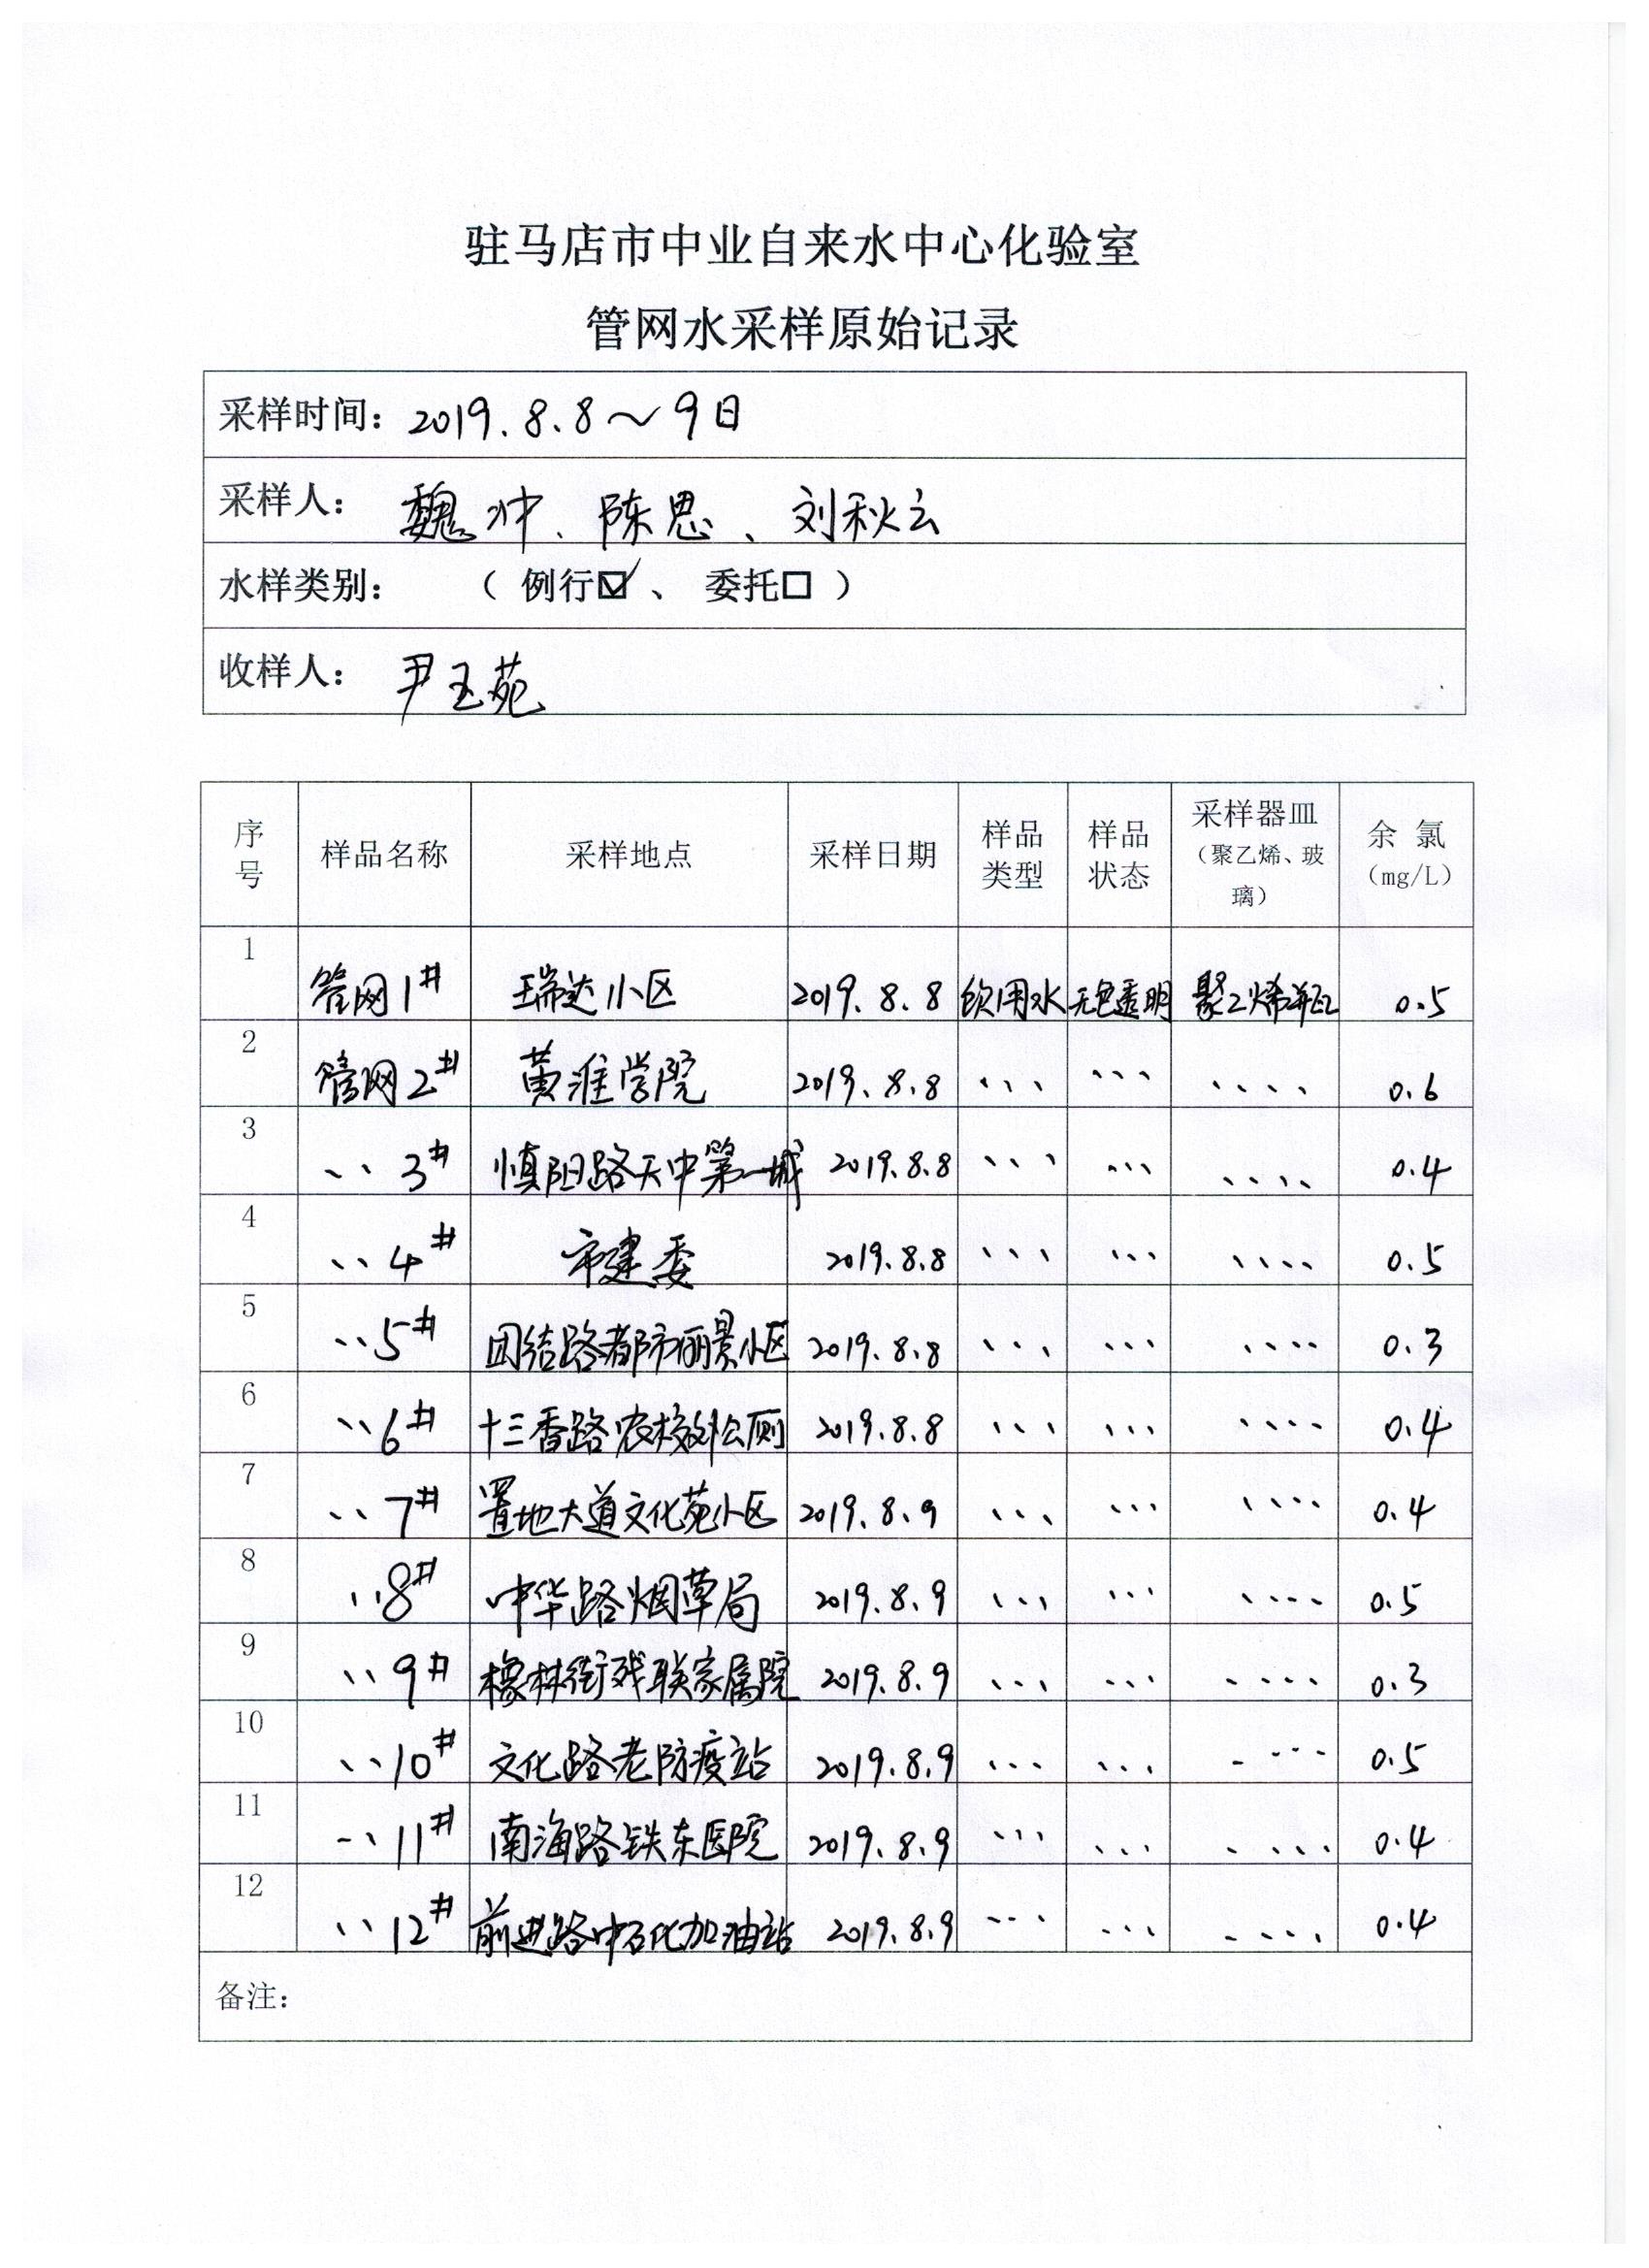 驻马店市中业自来水中心化验室
管网水采样原始记录
采样时间： 2019.8.8～9日
采样人： 魏冲、陈思、刘秋云
水样类别： （ 例行☑、 委托□ ）
收样人： 尹玉苑
序号 样品名称 采样地点 采样日期 样品类型 样品状态 采样器皿（聚乙烯、玻璃） 余氯（mg/L）
1 管网1# 瑞达小区 2019.8.8 饮用水 无色透明 聚乙烯瓶 0.5
2 管网2# 黄淮学院 2019.8.8 、、、 、、、 、、、、 0.6
3 、、3# 慎阳路天中第一城 2019.8.8 、、、 、、、 、、、、 0.4
4 、、4# 市建委 2019.8.8 、、、 、、、 、、、、 0.5
5 、、5# 团结路都市丽景小区 2019.8.8 、、、 、、、 、、、、 0.3
6 、、6# 十三香路农校外公厕 2019.8.8 、、、 、、、 、、、、 0.4
7 、、7# 置地大道文化苑小区 2019.8.9 、、、 、、、 、、、、 0.4
8 、、8# 中华路烟草局 2019.8.9 、、、 、、、 、、、、 0.5
9 、、9# 橡林街残联家属院 2019.8.9 、、、 、、、 、、、、 0.3
10 、、10# 文化路老防疫站 2019.8.9 、、、 、、、 、、、、 0.5
11 、、11# 南海路铁东医院 2019.8.9 、、、 、、、 、、、、 0.4
12 、、12# 前进路中石化加油站 2019.8.9 、、、 、、、 、、、、 0.4
备注：